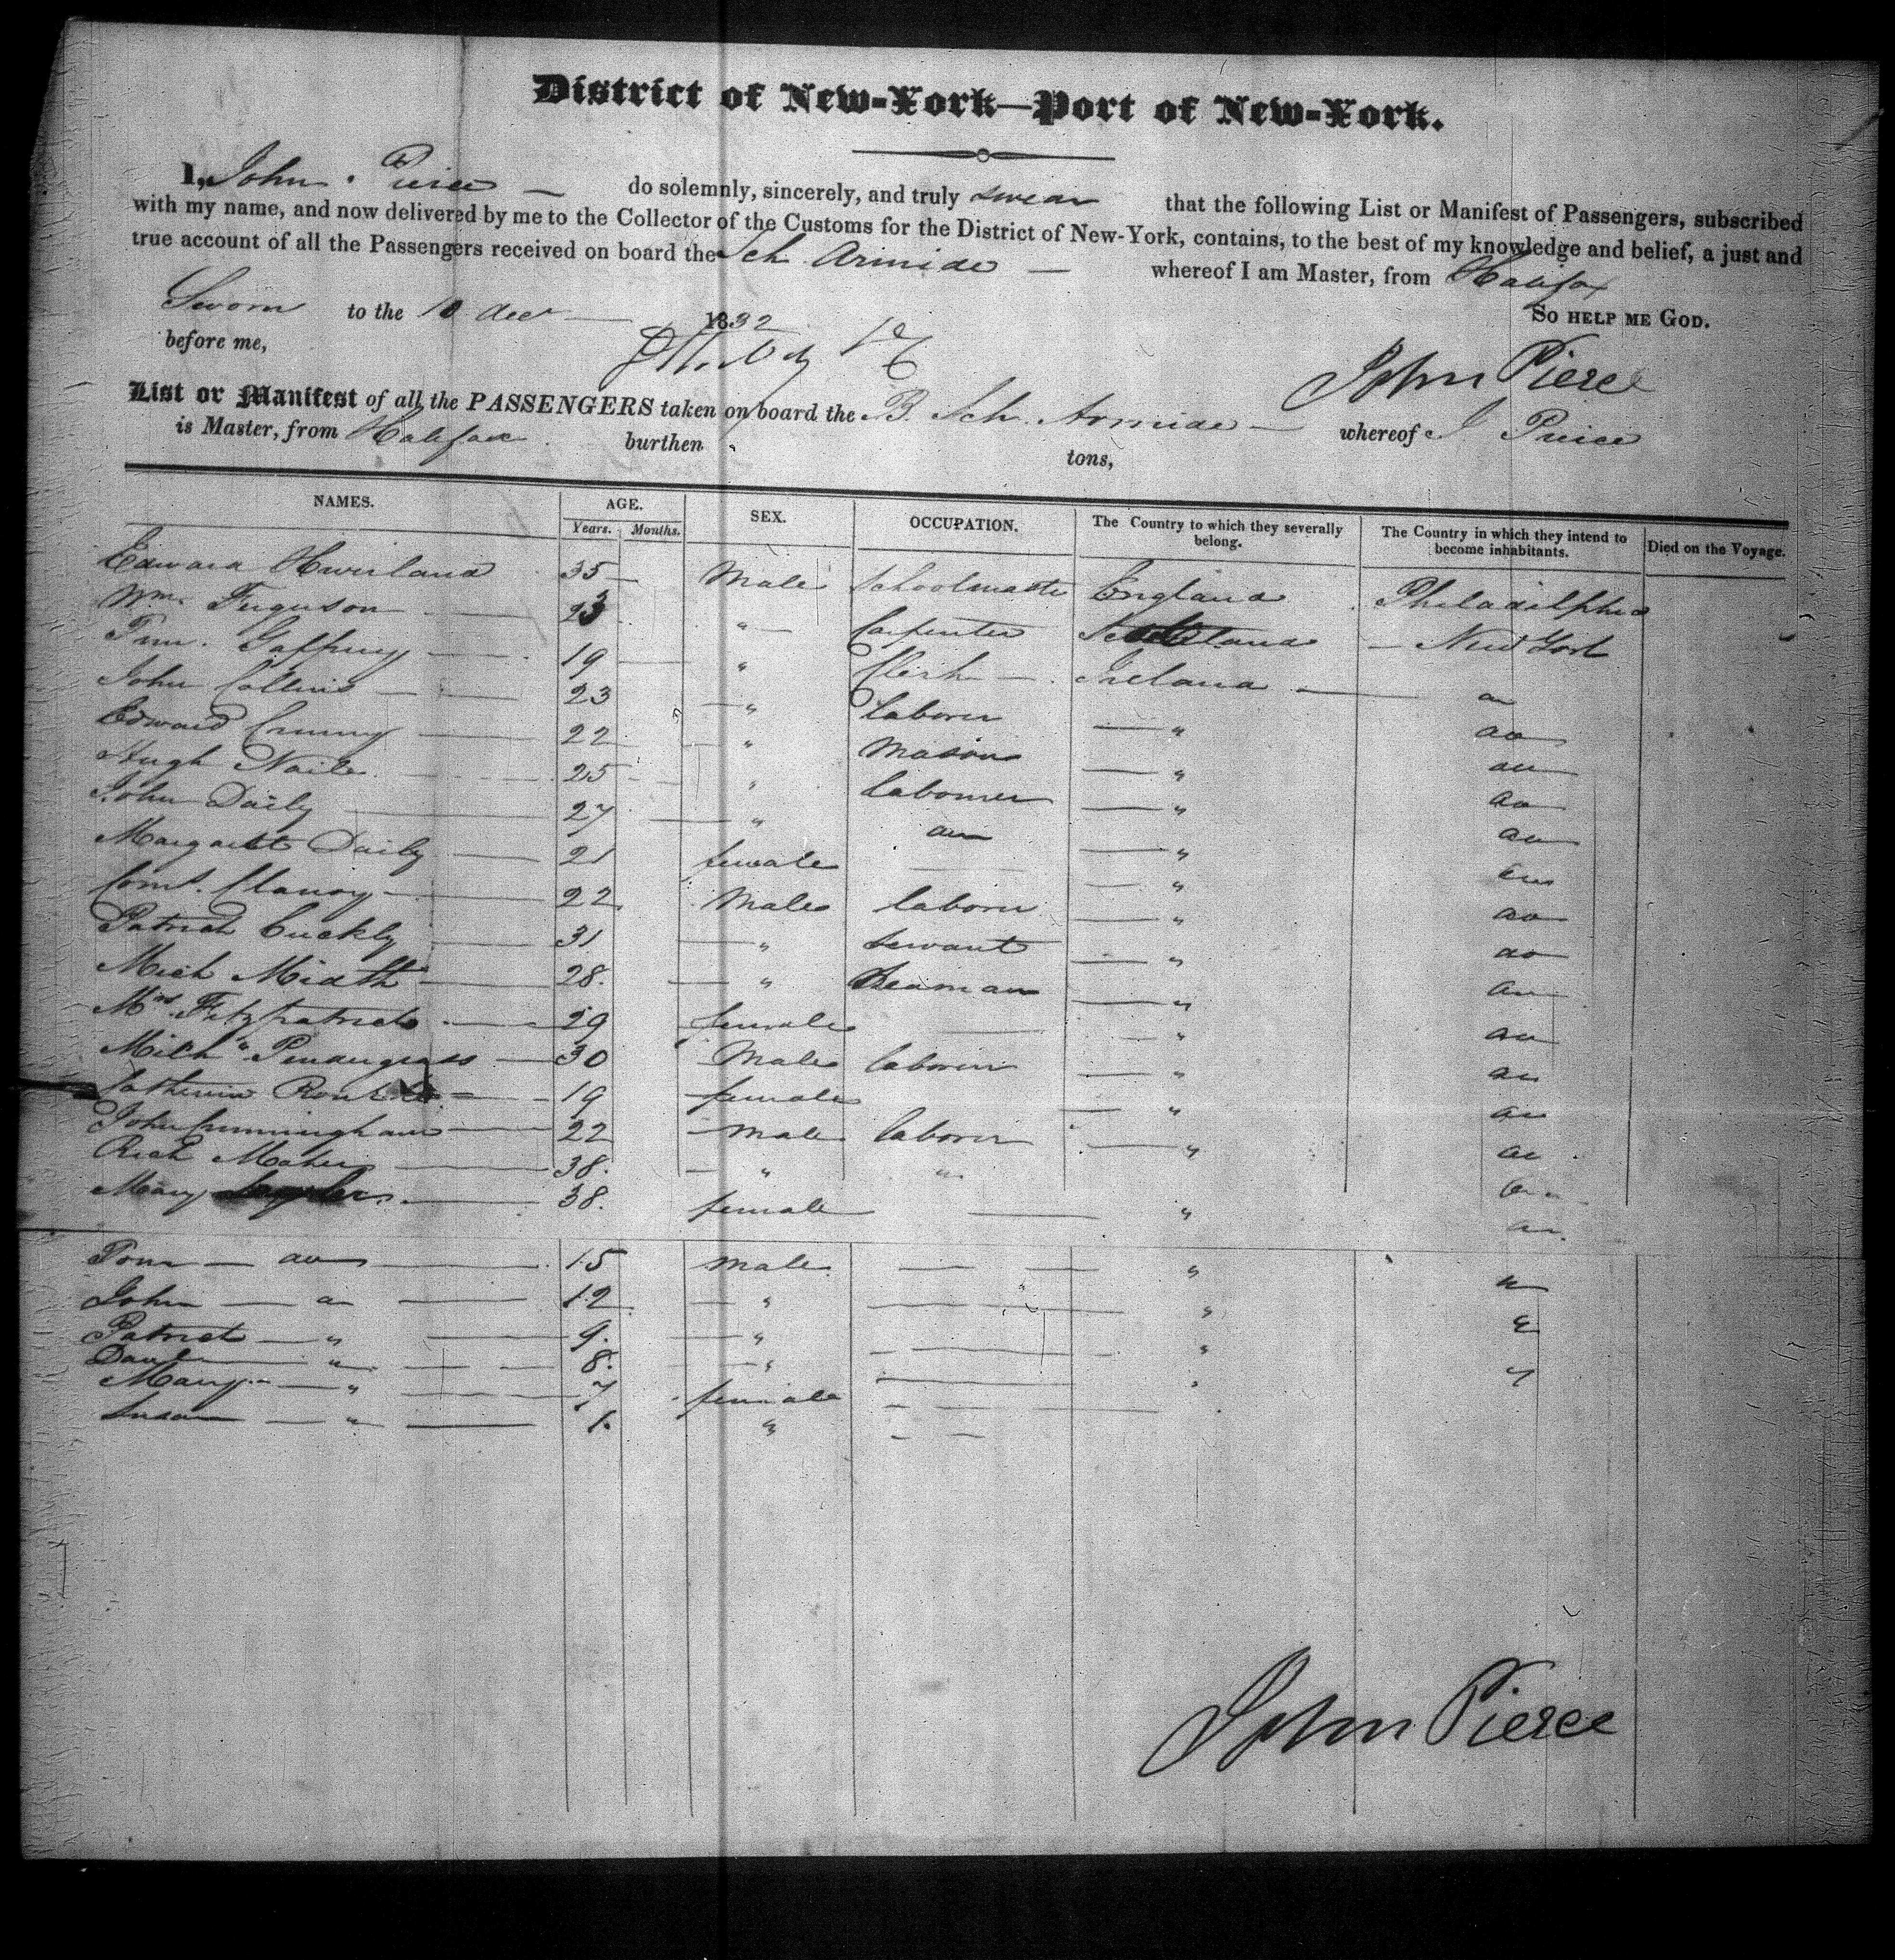 District of New-York—Port of New-York.
I, John Pierce — do solemnly, sincerely, and truly swear that the following List or Manifest of Passengers, subscribed
with my name, and now delivered by me to the Collector of the Customs for the District of New-York, contains, to the best of my knowledge and belief, a just and
true account of all the Passengers received on board the Sch Armide — whereof I am Master, from Halifax
So help me God.
Sworn to the 10 Dec 1832
before me,
John Pierce
List or Manifest of all the PASSENGERS taken on board the B. Sch. Armide — whereof J Pierce
is Master, from Halifax burthen tons,
NAMES. AGE. SEX. OCCUPATION. The Country to which they severally belong. The Country in which they intend to become inhabitants. Died on the Voyage.
Years. Months.
Edward 35 Male Schoolmaster England Philadelphia
Wm. Ferguson 23 " Carpenter New York
Gaffney 19 " Clerk Ireland do
John Collins 23 " laborer " do
Edward 22 " Mason " do
Hugh 25 " labourer " do
John Daily 27 " do " do
Margarett Daily 21 female " do
22 Male laborer " do
Patrick Buckly 31 " servant " do
Mich 28. " Seaman " do
Mrs. Fitzpatrick 29 female " do
Mich " 30 Male laborer " do
Catherine 19 female " do
John Cunningham 22 male laborer " do
Rich Maher 38. " " do
Mary 38. female " do
Tom — do 15 male "
John — do 12 " "
Patrick — " 9. " "
" 8. "
Mary — " 7 female
Susan — " 1. "
John Pierce